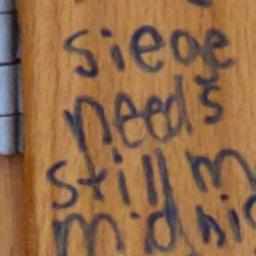 siege
needs
still m
midnig